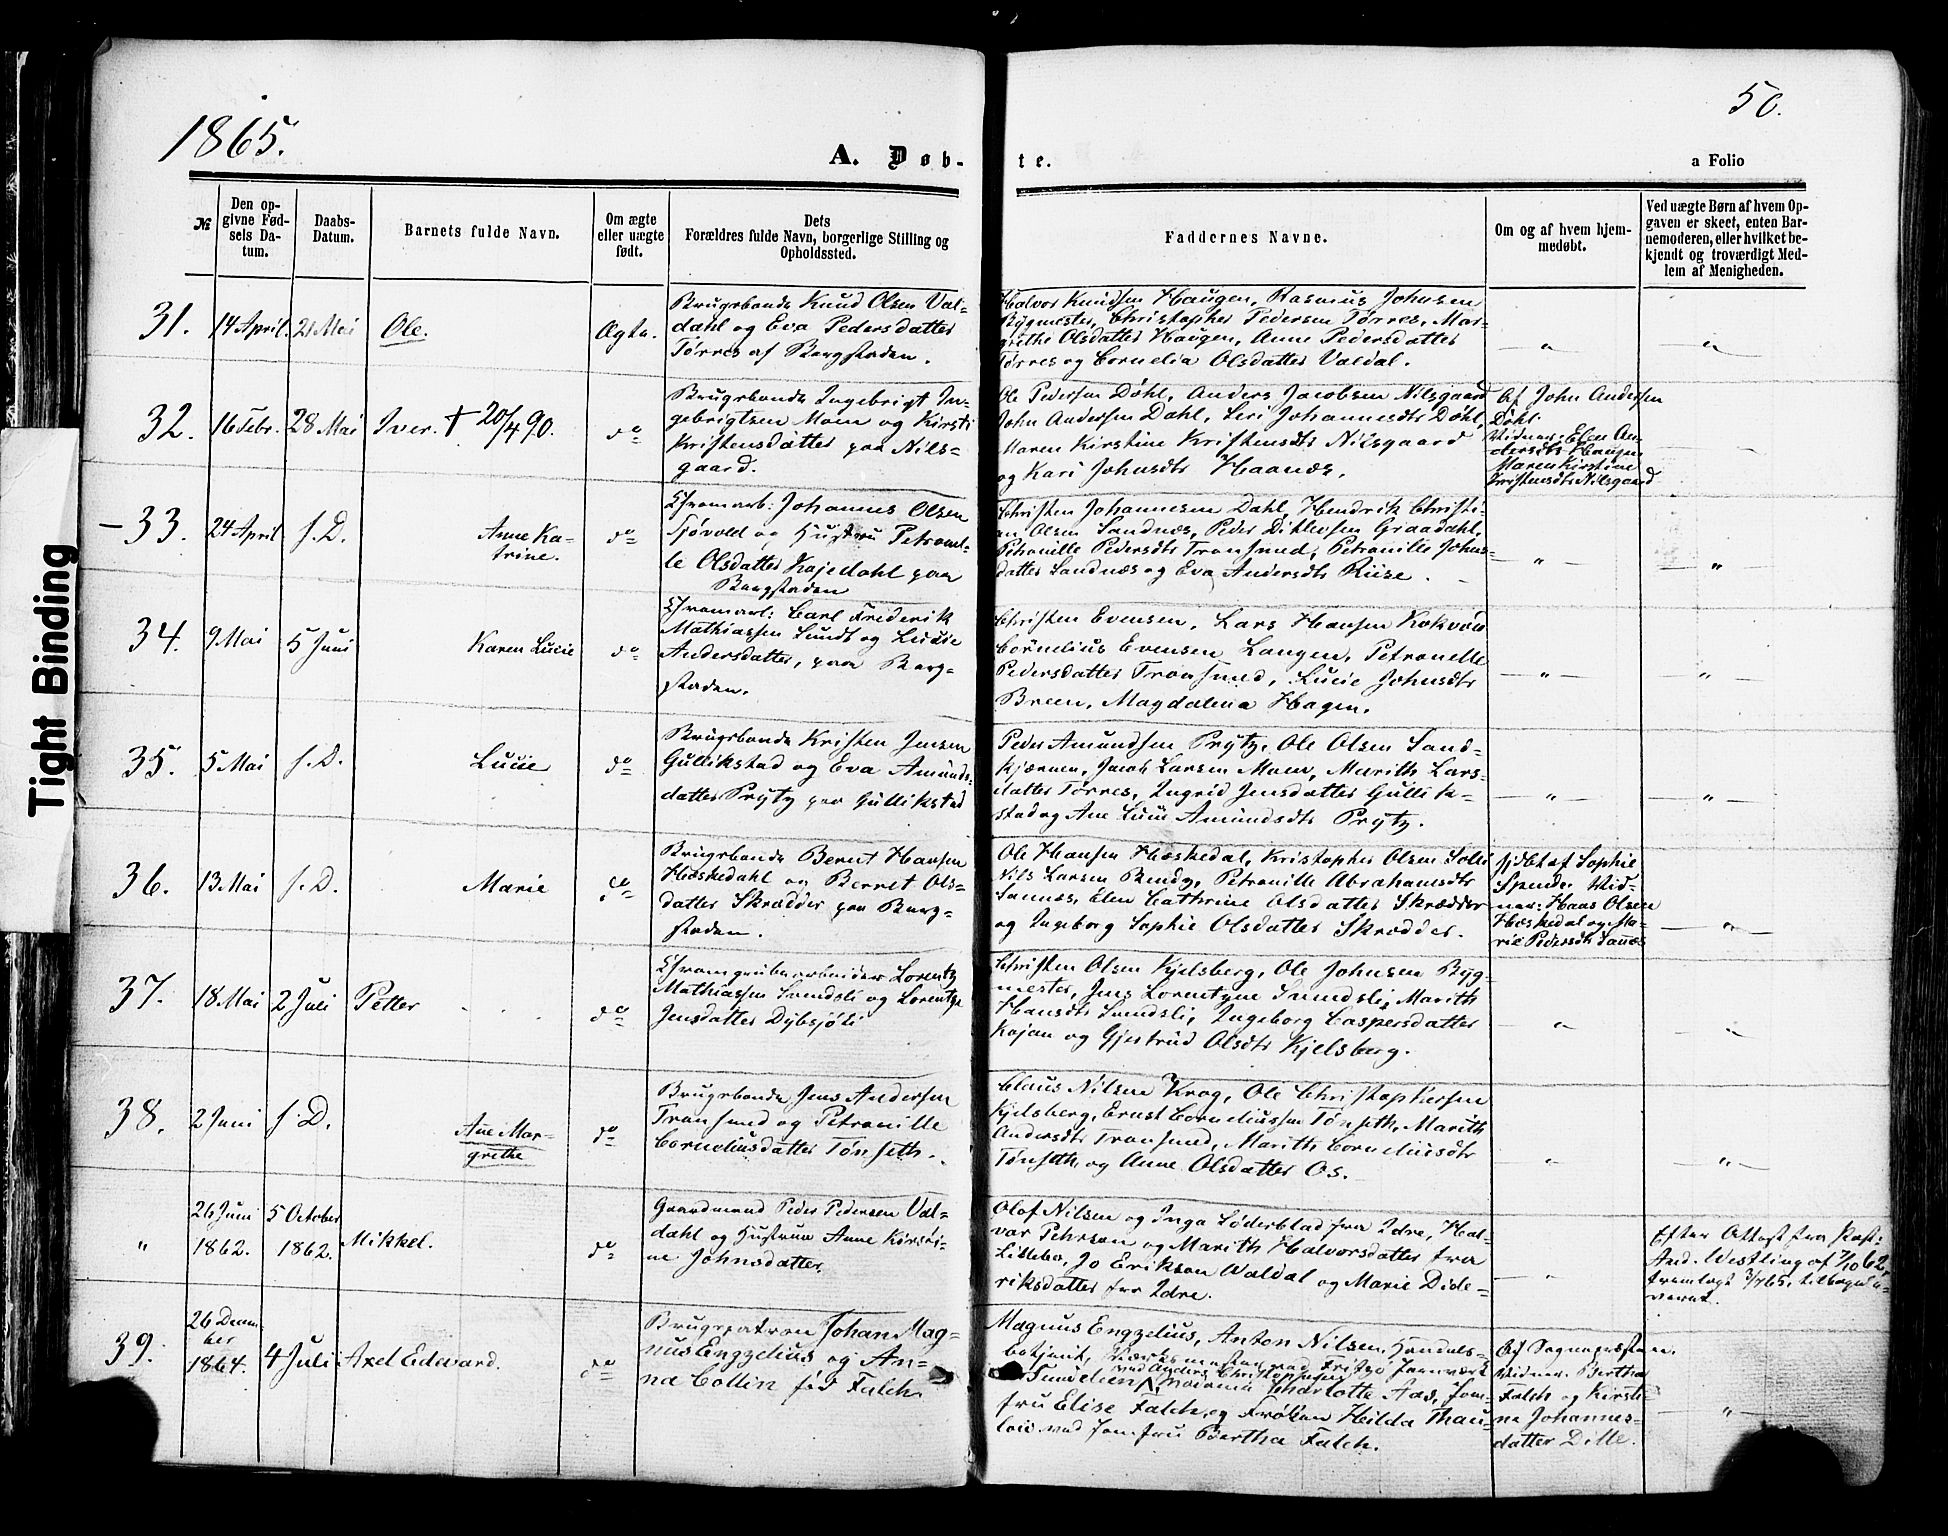 1865.
50.
A. Døb-
te.
a Folio
№
Den op-
givne Fød-
sels Da-
tum.
Daabs-
Datum.
Barnets fulde Navn.
Om ægte
eller uægte
født.
Dets
Forældres fulde Navn, borgerlige Stilling og
Opholdssted.
Faddernes Navne.
Om og af hvem hjem-
medøbt.
Ved uægte Børn af hvem Op-
gaven er skeet, enten Bar-
nemoderen, eller hvilket be-
kjendt og troværdigt Med-
lem af Menigheden.
31. 14 April. 21 Mai Ole. Ægte.
Brugsbonde Knud Olsen Val-
dahl og Eva Pedersdatter
Tørres af Bergstaden.
Halvor Knudsen Haugen, Rasmus Johnsen
Bygmester, Christopher Pedersen Tørres, Mar-
grethe Olsdatter Haugen, Anne Pedersdatter
Tørres og Cornelia Olsdatter Valdal.
32. 16 Febr. 28 Mai Iver. † 20/4 90. do
Brugsbonde Ingebrigt In-
gebrigtsen Moen og Kirsti
Kristensdatter paa Nils-
gaard.
Ole Pedersen Døhl, Anders Jacobsen Nilsgaard
John Andersen Dahl, Siri Johannesdtr Døhl,
Maren Kirstine Kristensdtr Nilsgaard
og Kari Johnsdtr Haanæs.
Af John Andersen
Døhl.
Vidner: Elen An-
dersdtr Haugen
Maren Kirstine
Kristensdtr Nilsgaard
- 33. 24 April s. D. Anne Ka-
trine. do
Chromarb: Johannes Olsen
Sjøvold og Hustru Petronel-
le Olsdatter Kojedahl paa
Bergstaden
Christen Johannesen Dahl, Hendrik Christi-
an Olsen Sandnæs, Peder Ditlevsen Graadahl,
Petronille Pedersdtr Tronsmed, Petronille Johns-
datter Sandnæs og Eva Andersdtr Riise.
34. 9 Mai 5 Juni Karen Lucie do
Chromarb: Carl Frederik
Mathiassen Sundt og Lucie
Andersdatter, paa Berg-
staden.
Christen Evensen, Lars Hansen Kokvold
Cornelius Evensen Langen, Petronelle
Pedersdatter Tronsmed, Lucie Johnsdtr
Breen, Magdalena Hagen.
35. 5 Mai s. D. Lucie do
Brugsbonde Kristen Jensen
Gullikstad og Eva Amunds-
datter Prytz paa Gullikstad
Peder Amundsen Prytz, Ole Olsen Sand-
kjærnen, Jacob Larsen Moen, Marith Lars-
datter Tørres, Ingrid Jensdatter Gullik-
stad og Ane Lucie Amundsdtr Prytz.
36. 13 Mai s. D. Marie do
Brugsbonde Bernt Hansen
Hæskedahl og Berret Ols-
datter Skrædder paa Berg-
staden.
Ole Hansen Hæskedal, Kristopher Olsen
Nils Larsen Bendz, Petronille Abrahamsdtr
Sannæs, Elen Cathrine Olsdatter Skrædder
og Ingeborg Sophie Olsdatter Skrædder.
hjdbt af Sophie
Spende. Vid-
ner: Hans Olsen
Hæskedal og Ma-
rie Pedersdtr Sanæs
37. 18 Mai 2 Juli Petter do
Chromgrubearbeider Lorentz
Mathiassen Svendsli og Lorentze
Jensdatter Dybsjøli
Christen Olsen Kjelsberg, Ole Johnsen Byg-
mester, Jens Lorentzen Svendsli, Marith
Hansdtr Svendsli, Ingeborg Caspersdatter
Kojan og Gjertrud Olsdtr Kjelsberg.
38. 2 Juni s. D. Ane Mar-
grethe do
Brugsbonde Jens Andersen
Tronsmed og Petronille
Corneliusdatter Tønseth.
Claus Nilsen Krog, Ole Christophersen
Kjelsberg, Ernst Corneliussen Tønseth, Marith
Andersdtr Tronsmed, Marith Corneliusdtr
Tønseth, og Anne Olsdatter Os.
" 26 Juni
1862. 5 October
1862. Mikkel. do
Gaardmand Peder Pedersen Val-
dahl og Hustrue Anne Kirsti-
ne Johnsdatter.
Olof Nilsen og Inga Søderblad fra Idre, Hal-
var Pehrson og Marith Halvorsdatter fra
Lillebo, Jo Erikson Waldal og Marie Dide-
riksdatter fra Idre.
Efter Attest fra Past:
And. Westling af 7/10 62,
fremlagt 3/7 65, tilbagele-
veret.
39. 26 Decem-
ber
1864. 4 Juli Axel Edvard. do
Brugspatron Johan Mag-
nus Engzelius og An-
na Collin fød Falch.
Magnus Engzelius, Anton Nilsen, Handels-
betjent, Værksmester ved Fritzø Jernværk
ved Anders Christophersen
Tundelien, Madame Charlotte Aas, Jom-
fru Elise Falch, og Frøken Hilda Thau-
low ved Jomfru Bertha Falch.
Af Sognepresten.
Vidner. Bertha
Falch og Kirsti-
ne Johannes-
datter Dille.
Tight Binding